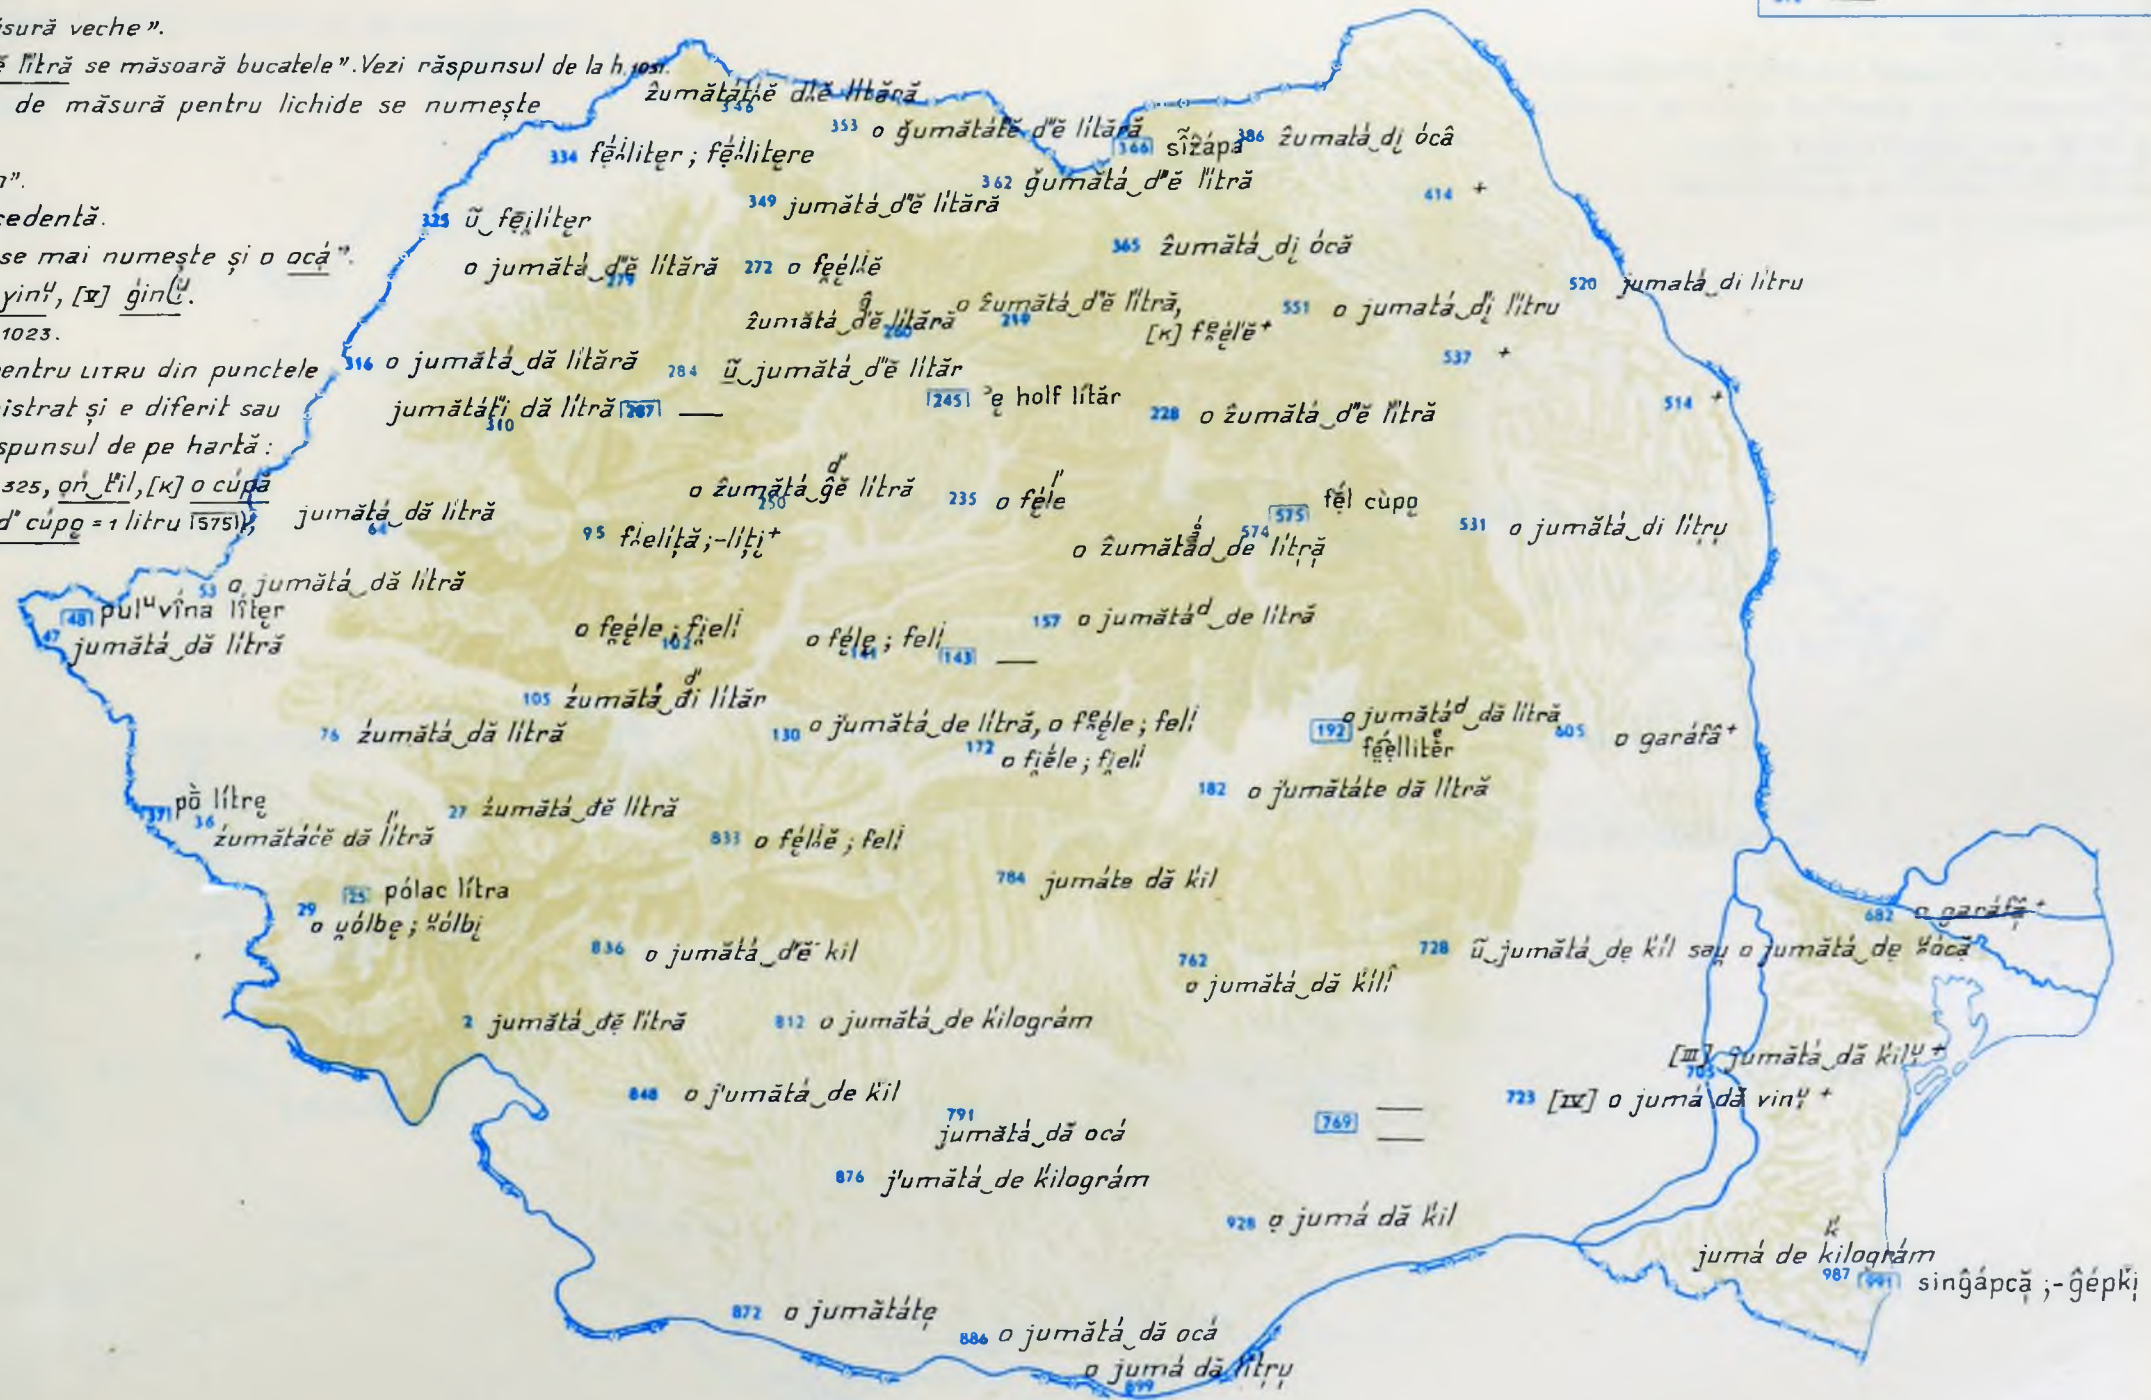 sură veche”.
litără se măsoară bucatele”. Vezi răspunsul de la h. 1051.
de măsură pentru lichide se numește
”.
cedentă.
se mai numește și o ocắ”.
yinᵘ̯, [V] ğin(ᵘ̯.
1023.
entru LITRU din punctele
istrat și e diferit sau
spunsul de pe hartă:
325, on̂‿t'il, [K] o cúpă
d' cúpo̧ = 1 litru [575]),
346 ẑumătát'ĕ d'ĕ litără
353 o ğumătát'ĕ d'ĕ lítără
334 fẹ́i̯liter ; fẹ́i̯litere
366 sîẑápa
386 ẑumatá‿di̯ ócâ
362 ğumătá‿d'ĕ lítră
349 jumătá‿d'ĕ lítără
414 +
325 ũ‿fei̯líter
365 ẑumătá‿di̯ ócă
279 o jumătá‿d'ĕ lítără
272 o fe̯él'ĕ
520 jumatá‿di lítru
260 ẑumătá‿d'ĕ lítără
219 o ẑumătá‿d'ĕ lítră, [K] fe̯él'ĕ+
551 o jumatá‿di̯ lítru
537 +
316 o jumătá‿dă lítără
284 ũ‿jumătá‿d'ĕ lítăr
310 jumătát'i dă lítră
287 —
245 ᵊe̯ holf lítăr
228 o ẑumătá‿d'ĕ lítră
514 +
250 o ẑumătá‿ĝĕ lítră
235 o fẹ́l'e
575 fĕ́l cùpo̧
64 jumătá‿dă lítră
95 fi̯elíță ; -líți̯+
574 o ẑumătád‿de lítră
531 o jumătá‿di lítru̯
53 o jumătá‿dă lítră
48 pulᵘvína líter
47 jumătá‿dă lítră
102 o fe̯éle ; fi̯elĭ
141 o féle ; felĭ
143 —
157 o jumătáᵈ‿de lítră
105 źumătá‿di lítăr
76 źumătá‿dă lítră
130 o j'umătá‿de lítră, o fe̯éle ; felĭ
172 o fi̯éle ; fi̯elĭ
192 o jumătáᵈ‿dă lítră
fe̯éllitĕr
605 o garáfâ+
182 o j'umătáte dă lítră
37 pȍ lítre̯
36 źumătáćĕ dă lítră
27 źumătá‿đĕ lítră
833 o fél'ĕ ; felĭ
784 jumáte dă k'il
25 pólac lítra
29 o u̯ólbe̯ ; ᵘ̯ólbi̯
682 o garáfâ+
836 o jumătá‿d'ĕ kil
762 o jumătá‿dă k'ílĭ
728 ũ‿jumătá‿de k'íl sau̯ o jumătá‿de ᵘ̯ócă
2 jumătá‿đĕ lítră
812 o jumătá‿de k'ilográm
705 [III] jumătá‿dă k'ilᵘ̯+
848 o j'umătá‿de k'il
723 [IV] o jumá dă vinᵘ̯+
791 jumătá‿dă ocá
769 —
—
876 j'umătá‿de k'ilográm
928 o jumá dă k'il
987 jumá de k'ilográm
991 singápcă ; -ĝépk'i̯
872 o jumătáte̯
886 o jumătá‿dă ocá
899 o jumá dă lítru̯